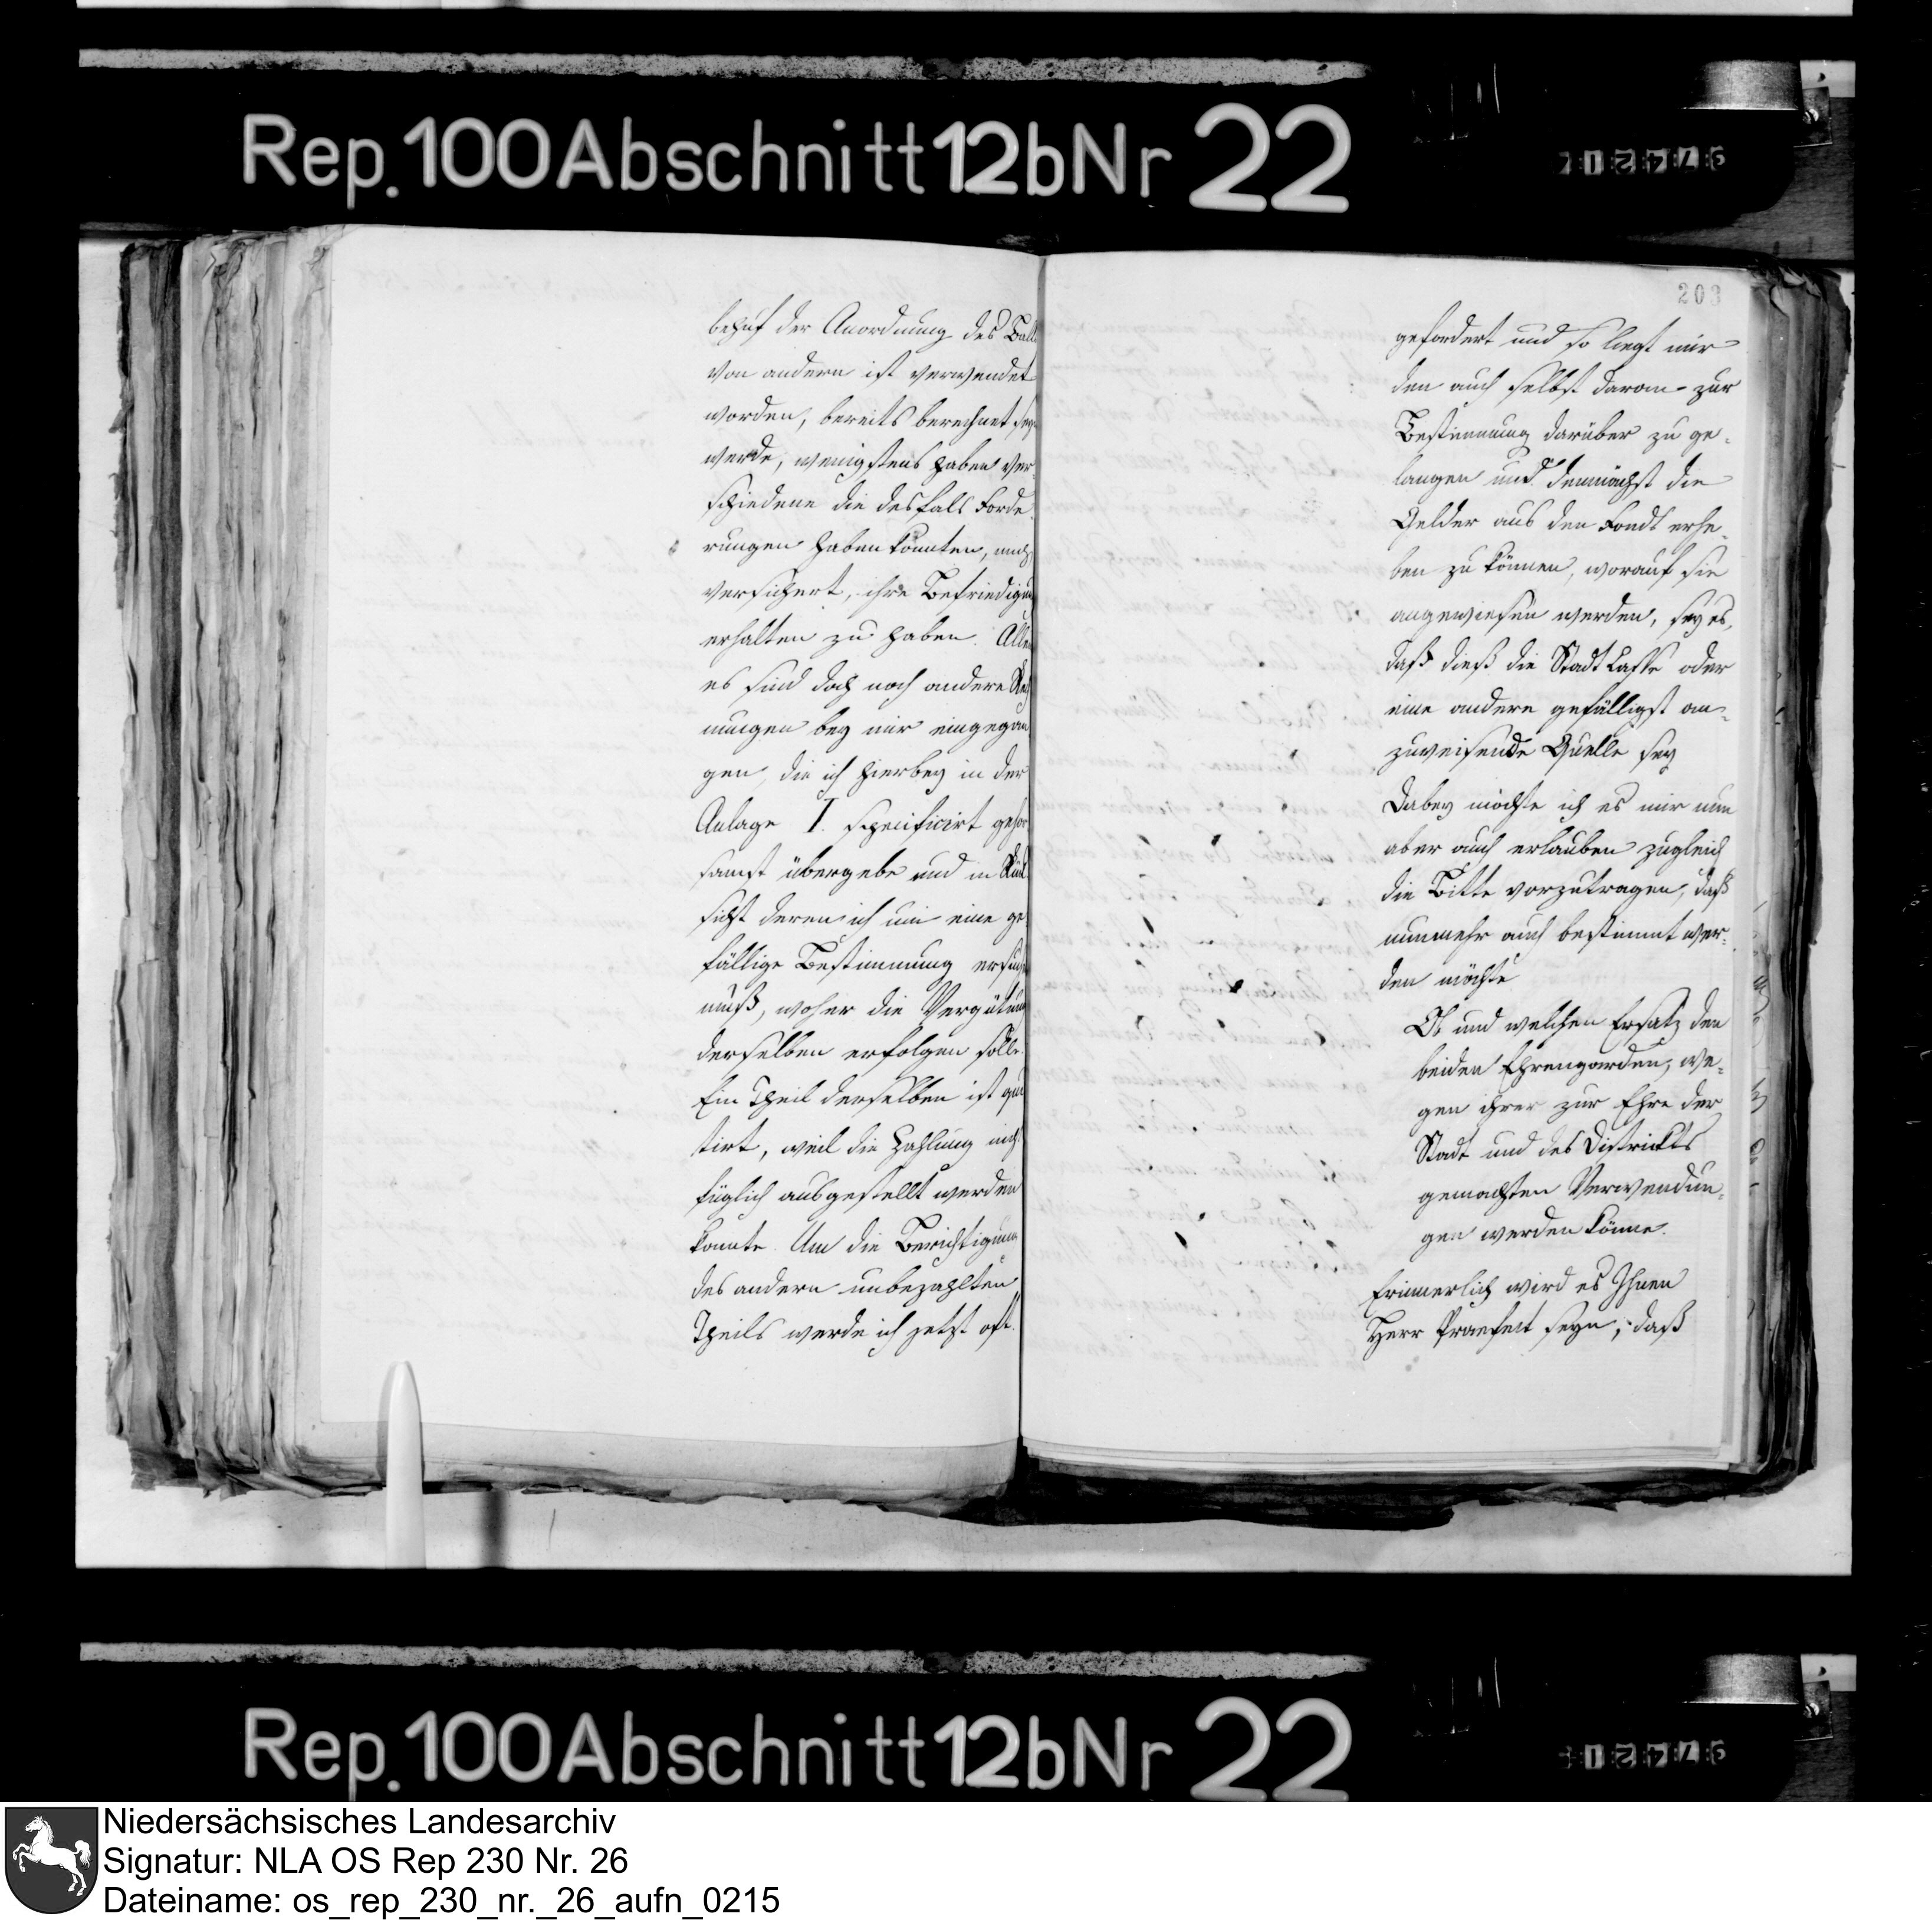 Rep. 100 Abschnitt 12b Nr 22
behuf der Anordnung des Balls
von andern ist verwendet
worden, bereits berechnet seyn
werde, wenigstens haben ver-
schiedene die desfals Forde-
rungen haben könnten, mich
versichert, ihre Befriedigung
erhalten zu haben. Allein
es sind doch noch andere Rech
nungen bey mir eingegan
gen, die ich hierbey in der
Anlage I. specificirt gehor
samst übergebe und in Rück
sicht deren ich um eine ge
fällige Bestimmung ersuchen
muß, woher die Vergütung
derselben erfolgen solle.
Ein Theil derselben ist quit
tirt, weil die Zahlung nicht
füglich ausgestellt werden
konnte. Um die Berichtigung
des andern unbezahlten
Theils werde ich jetzt oft
203
gefordert und so liegt mir
den auch selbst daran zur
Bestimmung darüber zu ge-
langen und demnächst die
Gelder aus den Fonds erhe-
ben zu können, worauf sie
angewiesen werden, sey es,
daß dieß die Stadt Casse oder
eine andere gefälligst an-
zuweisende Quelle sey
Dabey möchte ich es mir nun
aber auch erlauben zugleich
die Bitte vorzutragen, daß
nunmehr auch bestimmt wer-
den möchte
Ob und welchen Ersatz den
beiden Ehrengarden, we-
gen ihrer zur Ehre der
Stadt und des Districkts
gemachten Verwendun-
gen werden könne.
Erinnerlich wird es Ihnen
Herr Praefect seyn, daß
Rep. 100 Abschnitt 12b Nr 22
Niedersächsisches Landesarchiv
Signatur: NLA OS Rep 230 Nr. 26
Dateiname: os_rep_230_nr._26_aufn_0215